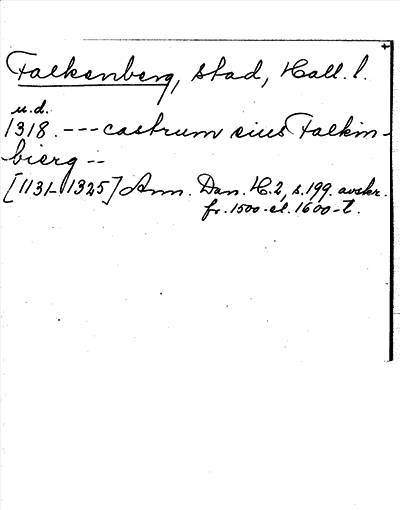 Falkenberg, stad, Hall. l.
u.d.
1318. --- castrum eius Falkin-
bierg --
[1131-1325] Ann. Dan. H.2, s.199. avskr.
fr. 1500- el. 1600-t.